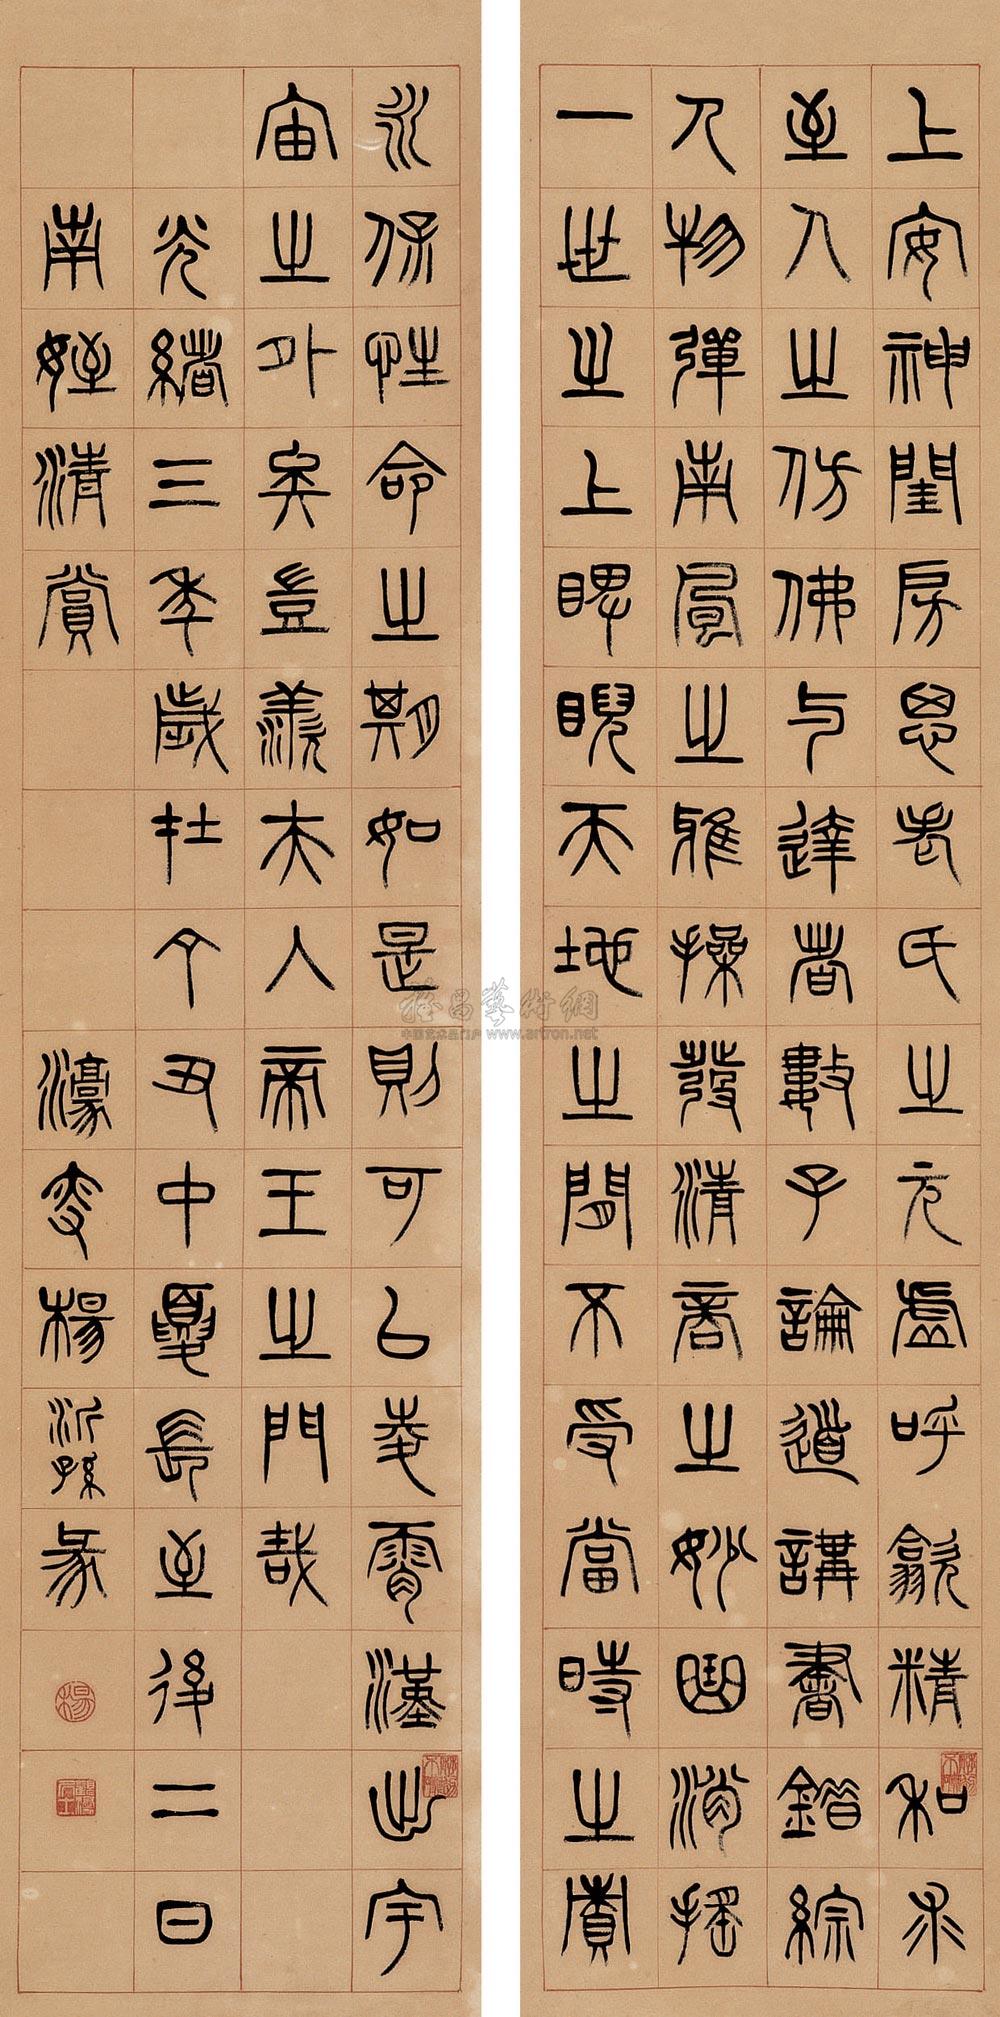 上安神閨房思老氏之元虛呼歙精和求
至人之仿佛与達者數子論道講書錯綜
人物彈南風之雅操發清商之妙曲消搖
一世之上睥睨天地之間不受當時之責
永保性命之期如是則可㠯夌霄漢出宇
宙之外矣豈羨夫人帝王之門哉
光緒三年歲在丁丑中夏長至後二日
南姪清賞 濠叟楊沂孫彖
楊
雅昌藝術網
中国艺术品门户 www.artron.net